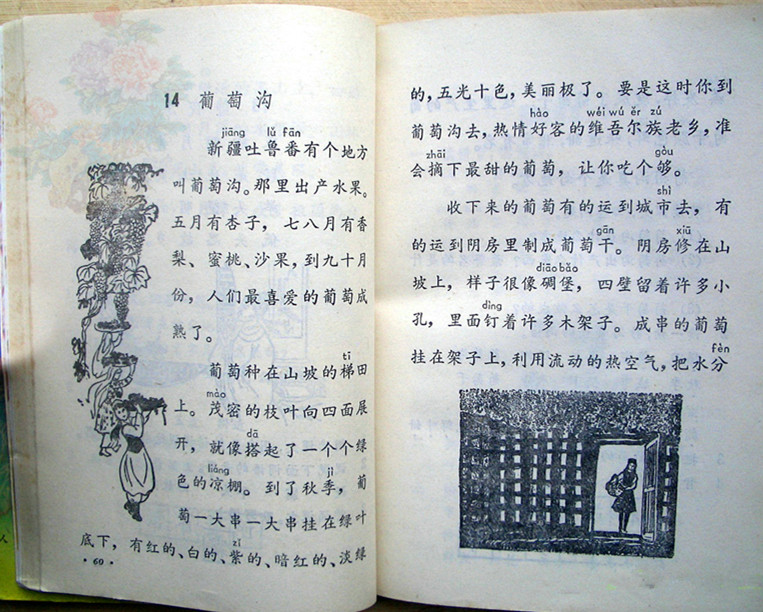 14 葡萄沟
jiāng lǔ fān
新疆吐鲁番有个地方
叫葡萄沟。那里出产水果。
五月有杏子，七八月有香
梨、蜜桃、沙果，到九十月
份，人们最喜爱的葡萄成
熟了。
tī
葡萄种在山坡的梯田
mào
上。茂密的枝叶向四面展
dā
开，就像搭起了一个个绿
liáng jì
色的凉棚。到了秋季，葡
萄一大串一大串挂在绿叶
zǐ
底下，有红的、白的、紫的、暗红的、淡绿
人
的，五光十色，美丽极了。要是这时你到
hào wéi wú ěr zú
葡萄沟去，热情好客的维吾尔族老乡，准
zhāi gòu
会摘下最甜的葡萄，让你吃个够。
shì
收下来的葡萄有的运到城市去，有
gān xiū
的运到阴房里制成葡萄干。阴房修在山
diāo bǎo
坡上，样子很像碉堡，四壁留着许多小
dìng
孔，里面钉着许多木架子。成串的葡萄
fèn
挂在架子上，利用流动的热空气，把水分